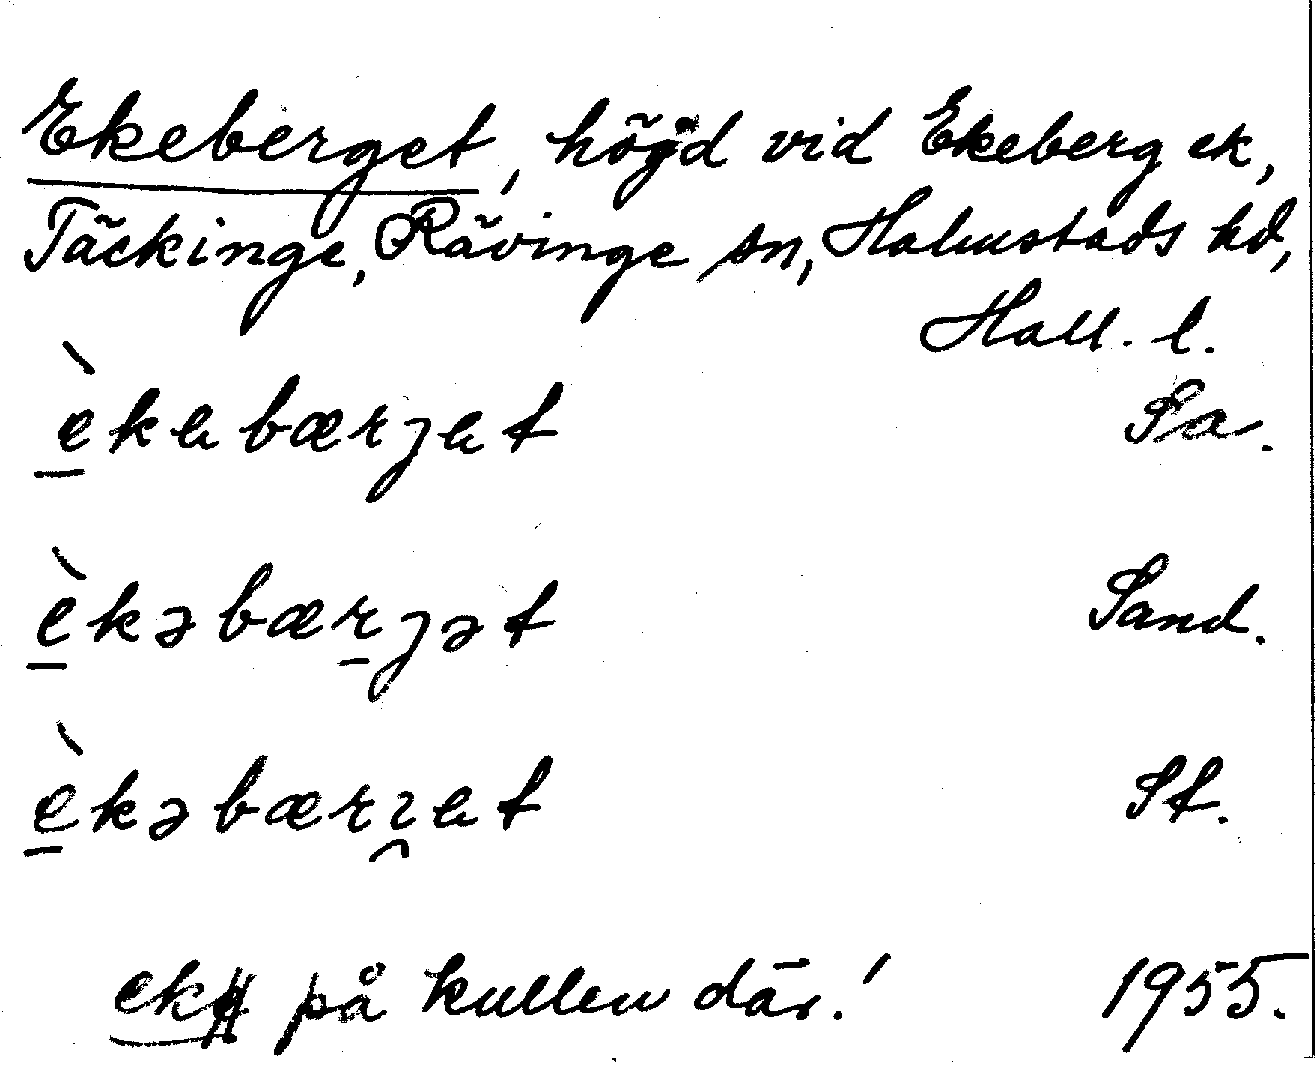 Ekeberget, höjd vid Ekeberg ek,
Täckinge, Rävinge sn, Halmstads hd,
Hall. l.
èkebærjet Sa.
èkəbærjət Sand.
èkəbærɿet St.
ek på kullen där! 1955.